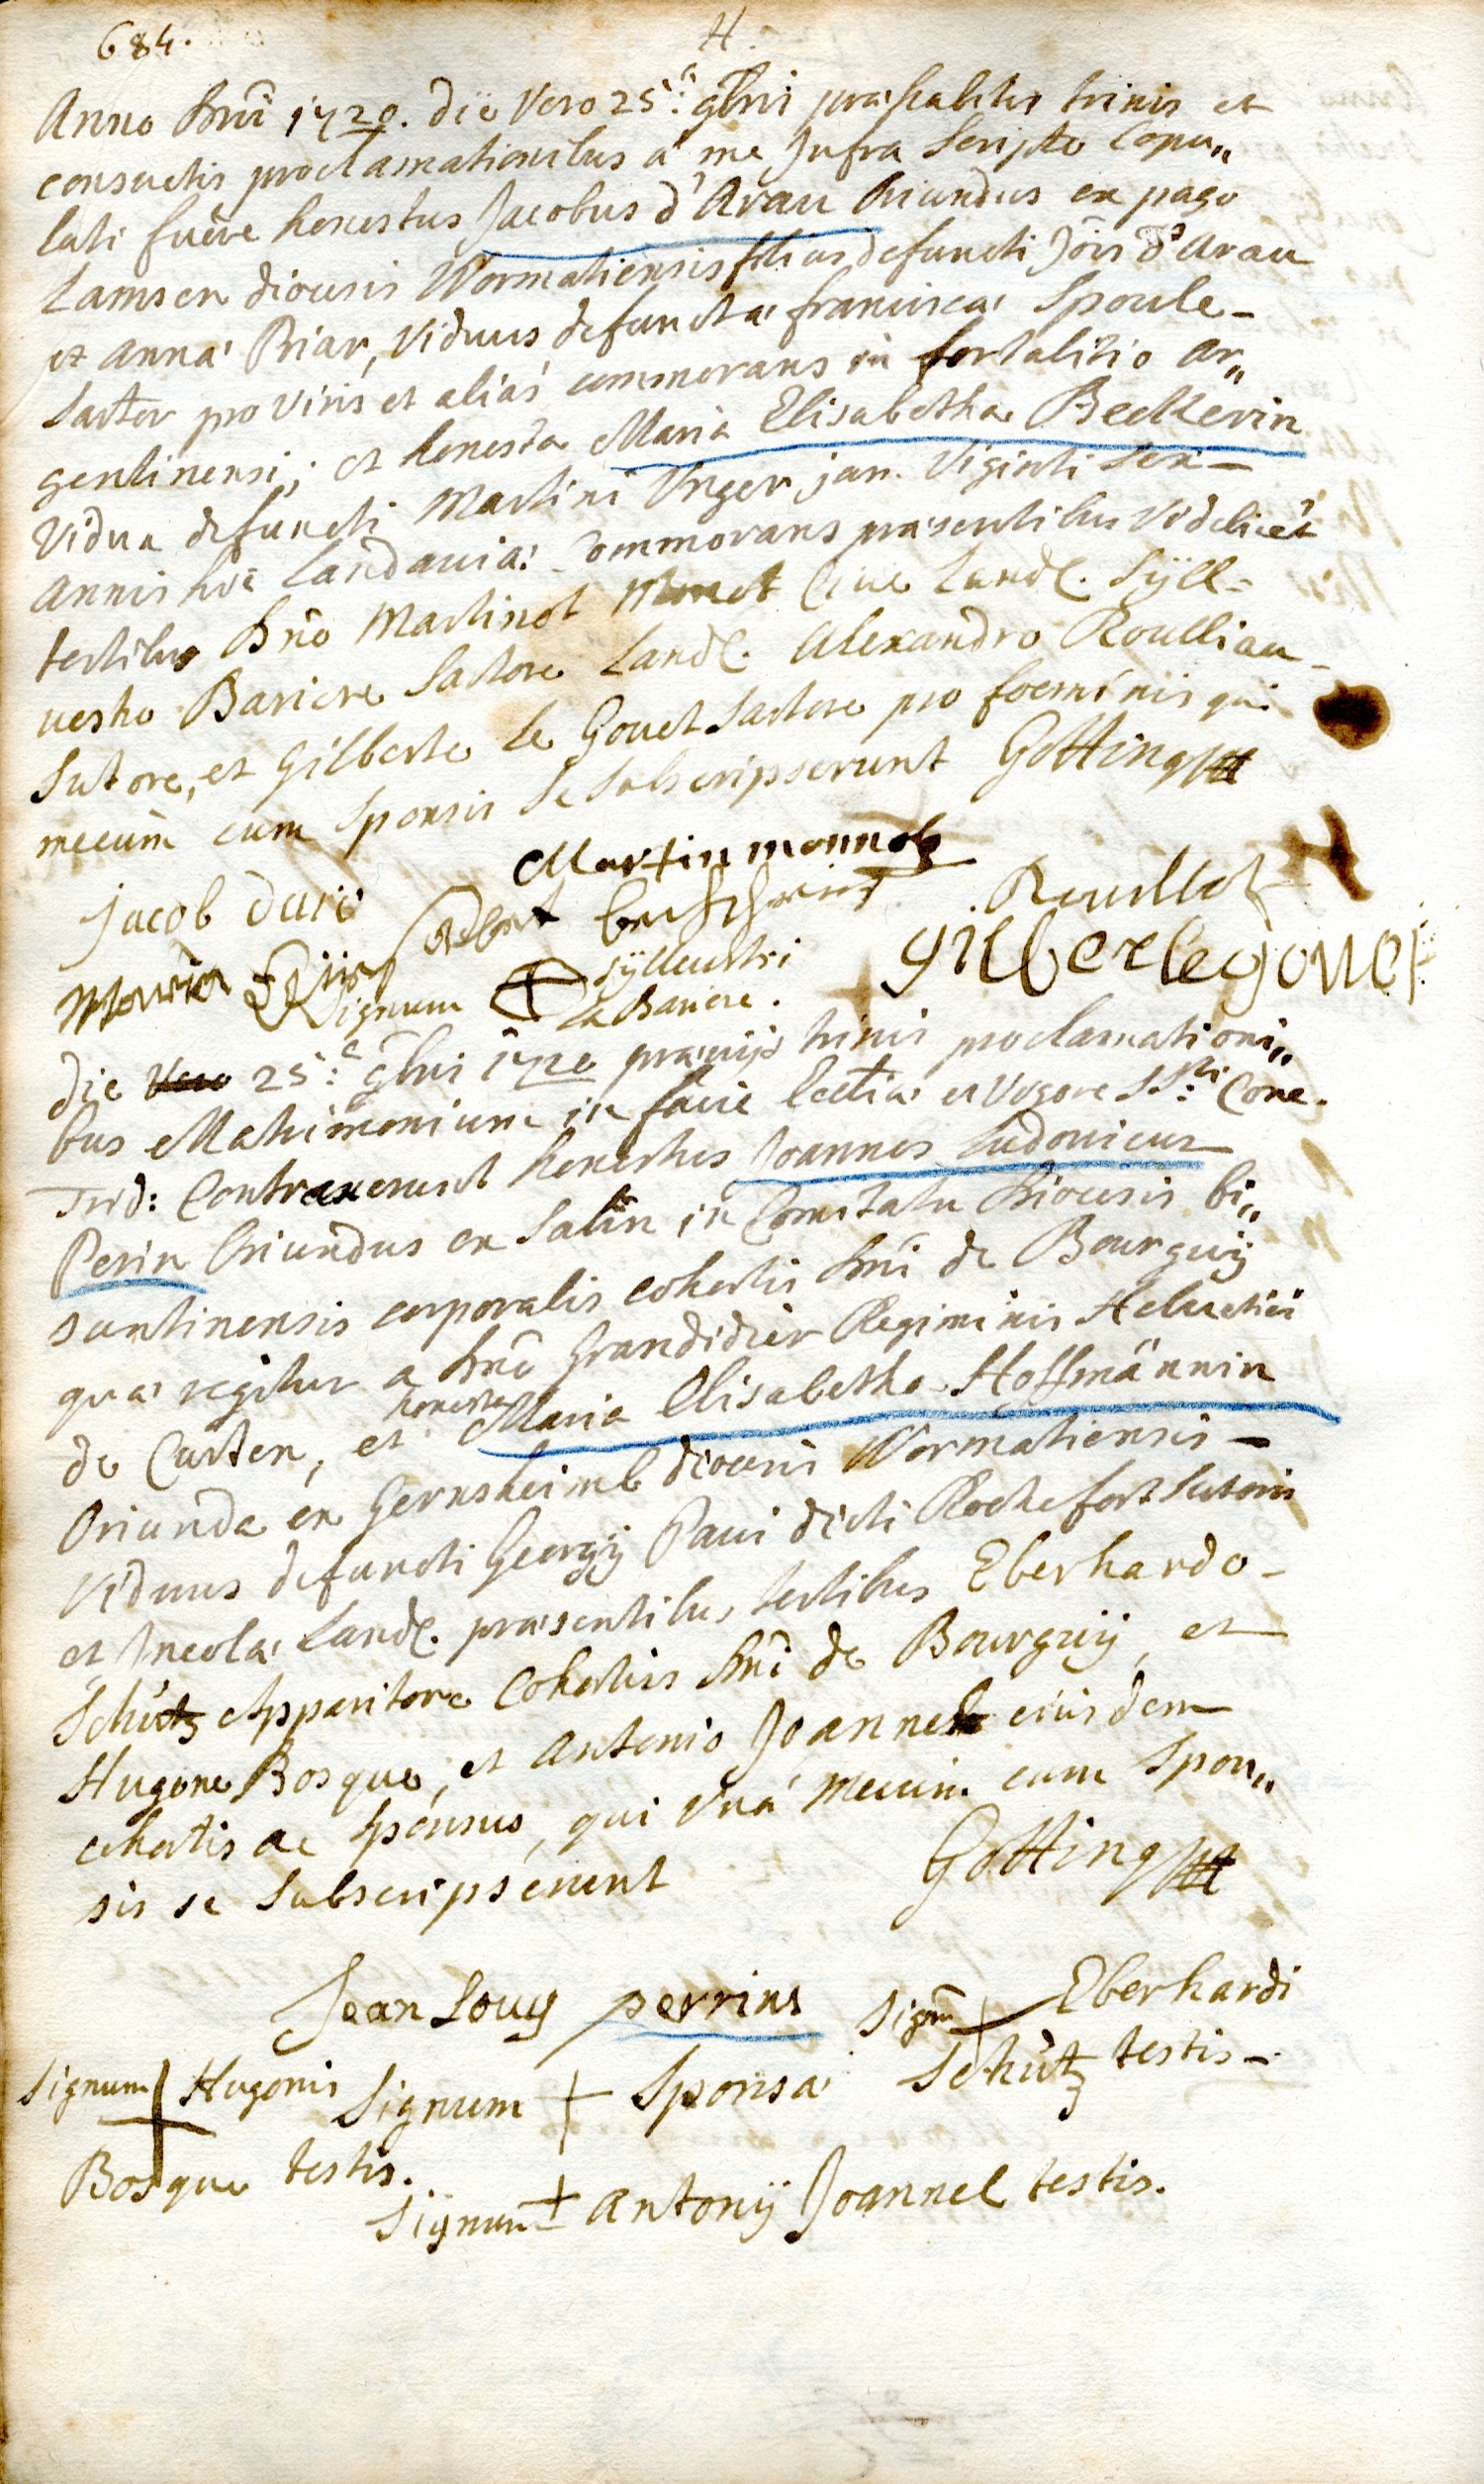 684.
H.
Anno Dnî 1720. die Vero 25.ª 9bris præhabitis trinis et
consuetis proclamationibus a me Infra Scripto Copu„
lati fuêre honestus Jacobus d'Arau Oriundus ex pago
Lamsen diœcesis Wormatiensis filius defuncti Jôis d'Arau
et Annæ Biar, Viduus defunctæ franciscæ Spoule-
Sartor pro Viris et aliàs commorans in fortalitio Ar„
gentinensi; et honesta Maria Elisabetha Beckerin
Vidua defuncti Martini Unger jam Viginti sex-
annis hîc Landaviæ Commorans præsentibus Videlicet
testibus Dnô Martinot Monet Cive Land. Sÿll=
vestro Bariere Sartore Land. Alexandro Roulliau-
Sutore, et Gilberte le Gouet Sartore pro foeminis qui
mecum cum Sponsis Se Subscripserunt Gotting
Martin monnot
Jacob Daro
Maria Signum Sÿlvestri
la Bariere.
Roullot
gilberlegouet
die Vero 25.ª 9bris 1720 præviis trinis proclamationi„
bus Matrimonium in facie Ecctiæ et Vigore SSti: Conc.
Trid: Contraxerunt honestus Joannes Ludovicus
Perin Oriundus ex Salin in Comitatu Diœcesis bi„
suntinensis corporalis cohortis Dnî de Bourguij
quæ regitur a Dnô Grandidier Regiminis Helvetici
de Carten, et honesta Maria Elisabetha Hoffmännin
Oriunda ex Gernsheimb diœcesis Wormatiensis-
Viduus defuncti Georgij Pavi dicti Rochefort Sutoris
et Incolæ Land. præsentibus testibus Eberhardo-
Schütz Apparitore Cohortis Dnî de Bourguij, et
Hugone Bosque, et Antonio Joannel eiusdem
cohortis ac Sponsus, qui Unà Mecum cum Spon„
sis se Subscripserunt Gotting
Jean Louy perrins
Signm Eberhardi
Schütz testis-
Signum Hugonis
Bosque testis.
Signum Sponsæ
Signum Antonij Joannel testis.